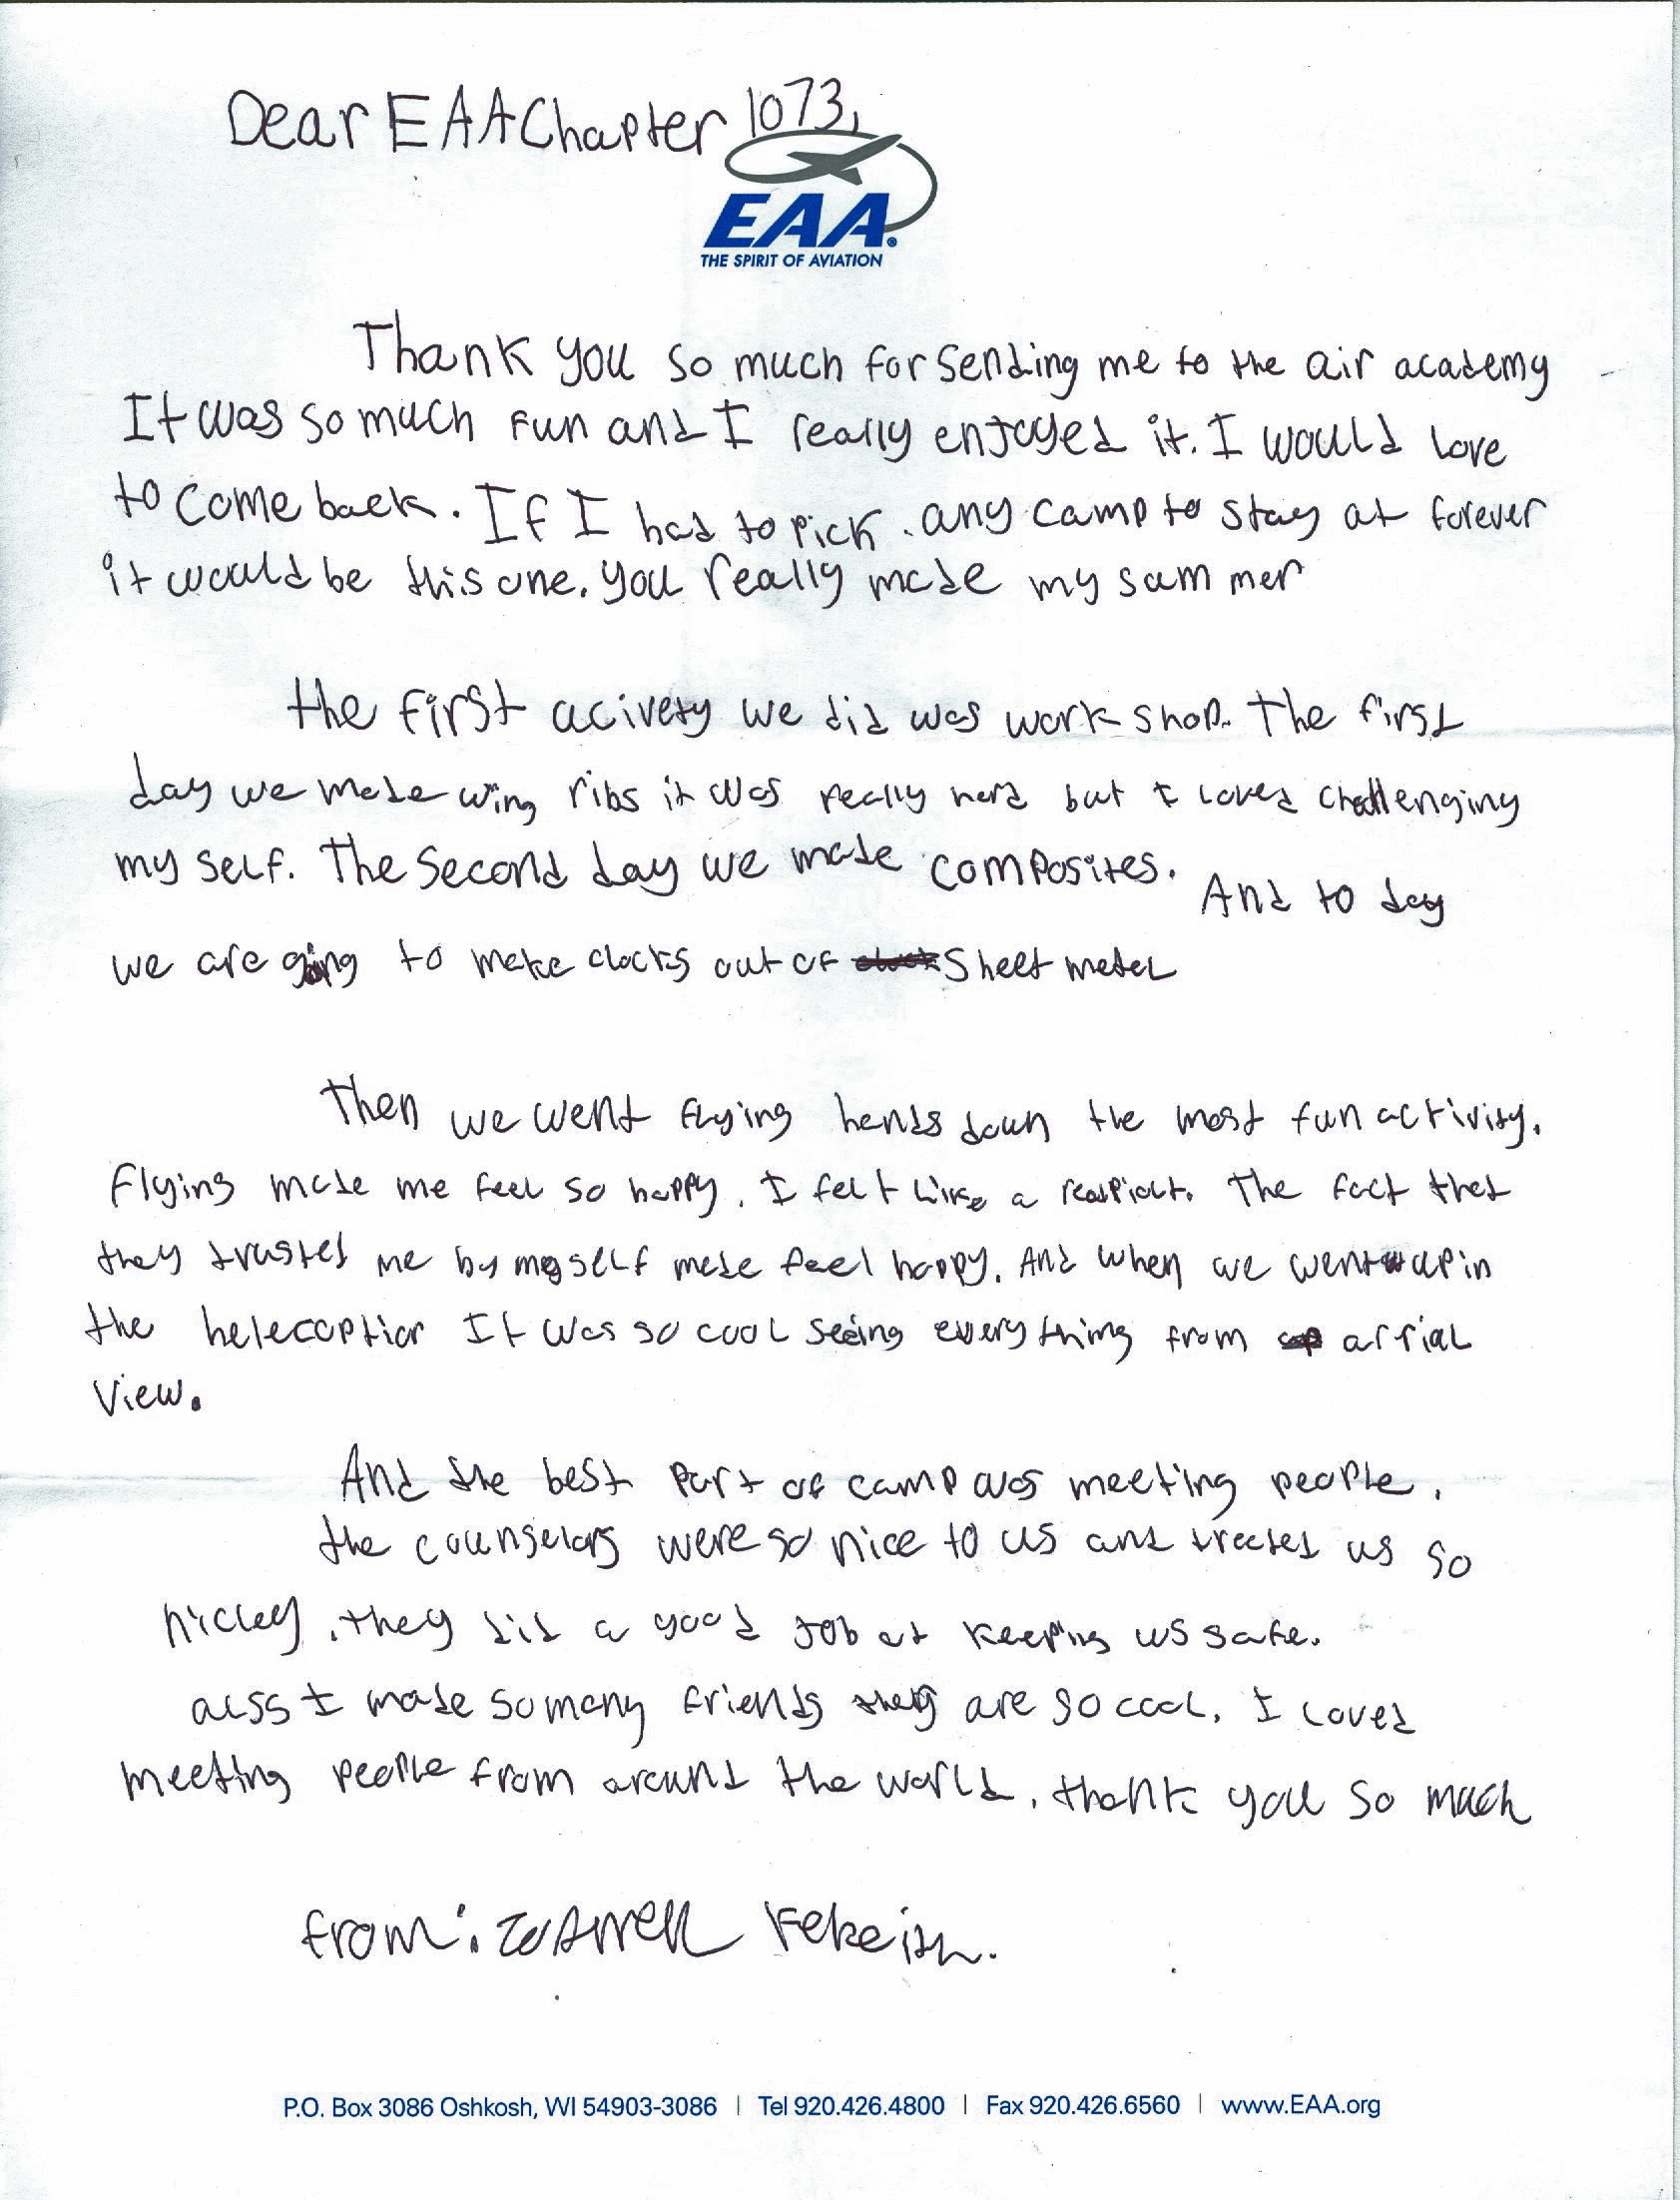 Dear EAA Chapter 1073,
EAA
THE SPIRIT OF AVIATION
Thank you so much for sending me to the air academy
It was so much fun and I really enjoyed it. I would love
to come back. If I had to pick any camp to stay at forever
it would be this one. you really made my summer
the first acivety we did was work shop. The first
day we made wing ribs it was really hard but I loved challenging
my self. The second day we made composites. And to day
we are going to make clocks out of sheet metal
Then we went flying hands down the most fun activity.
Flying made me feel so happy. I felt like a real The fact that
they trusted me by myself made feel happy. And when we went up in
the helecoptior It was so cool seeing every thing from arrial
view.
And the best part of camp was meeting people.
the counselors were so nice to us and treated us so
nicley. they did a good job at keeping us safe.
I made so many friends they are so cool. I loved
meeting people from around the world. thank you so much
from:
P.O. Box 3086 Oshkosh, WI 54903-3086 | Tel 920.426.4800 | Fax 920.426.6560 | www.EAA.org